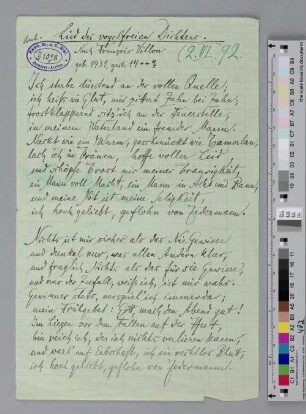 Lied des vogelfreien Dichters.
Nach François Villon
(2. VI. 92
geb. 1431, gest. 14
Ich sterbe dürstend an der vollen Quelle;
ich, heiß wie Glut, mir zittert Zahn an Zahn;
frostklappernd sitz ich an der Feuerstelle,
in meinem Vaterland ein fremder Mann.
Nackt wie ein Wurm, geschmückt wie Tamerlan,
lach ich in Tränen, hoffe voller Leid
und schöpfe Trost mir meiner Traurigkeit,
ein Mann voll Macht, ein Mann in Acht und Bann,
und meine Not ist meine Seligkeit,
ich hochgeliebt, geflohn von Jedermann.
Nichts ist mir sicher als das Nie Gewisse
und dunkel nur, was allen Andern klar,
und fraglich Nichts als das für sie Gewisse,
und nur der Zufall, weiß ich, ist mir wahr.
Gewinner stets, verspiel ich immerdar;
mein Frühgebet: Gott, mach den Abend gut!
Im Liegen vor dem Fallen auf der Hut,
bin reich ich, der ich nichts verlieren kann,
und wart' auf Erbschaft, ich ein rechtlos Blut,
ich hochgeliebt, geflohn von Jedermann.